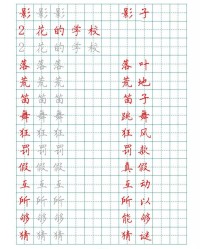 影 影 影 影 子
2 花 的 学 校
2 花 的 学 校
落 落 落 落 叶
荒 荒 荒 荒 地
笛 笛 笛 笛 子
舞 舞 舞 跳 舞
狂 狂 狂 狂 风
罚 罚 罚 罚 款
假 假 假 真 假
互 互 互 互 动
所 所 所 所 以
够 够 够 能 够
猜 猜 猜 猜 谜